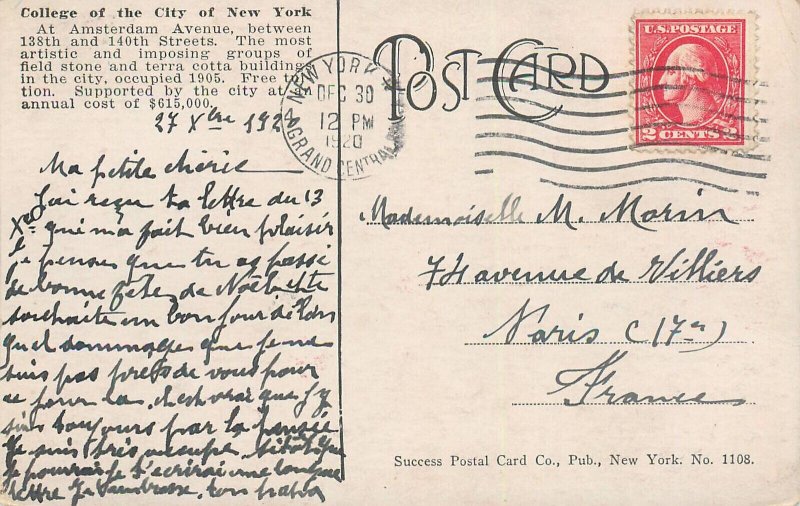 College of the City of New York
At Amsterdam Avenue, between
138th and 140th Streets. The most
artistic and imposing groups of
field stone and terra cotta buildings
in the city, occupied 1905. Free tui-
tion. Supported by the city at an
annual cost of $615,000.
POST CARD
U.S. POSTAGE
2 CENTS 2
NEW YORK
DEC 30
12 PM
1920
GRAND CENTRAL
27 Xbre 192
Ma petite chérie
J'ai reçu ta lettre du 13
Xre qui m'a fait bien plaisir
Je pense que tu as passé
de bonne fêtes de Noël et te
souhaite un bon jour de l'an
Quel dommage que je ne
suis pas près de vous pour
ce jour là. Il est vrai que j'y
suis toujours par la pensée
Je suis très occupé, sitôt que
je pourrai je t'écrirai une longue
lettre Je t'embrasse, ton papa
Mademoiselle M. Morin
74 avenue de Villiers
Paris (17e)
France
Success Postal Card Co., Pub., New York. No. 1108.